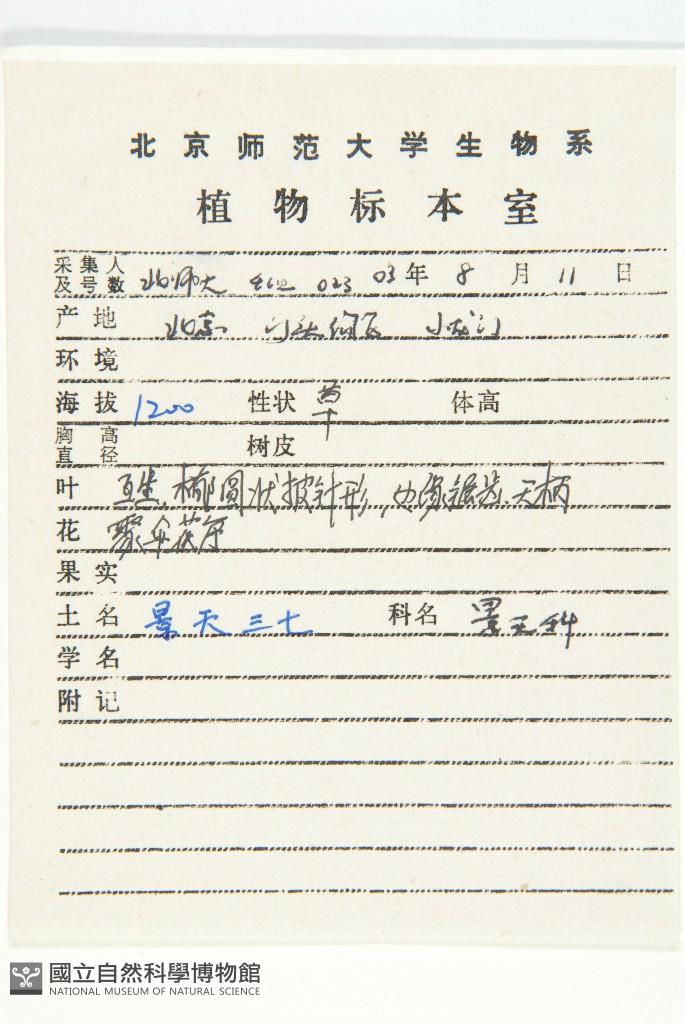 北京师范大学生物系
植物标本室
采集人及号数 北师大 023 03年 8月 11日
产地 北京 门头沟区 小龙门
环境
海拔 1200 性状 草 体高
胸高直径 树皮
叶 互生,椭圆状披针形,边缘锯齿,无柄
花 聚伞花序
果实
土名 景天三七 科名 景天科
学名
附记
國立自然科學博物館
NATIONAL MUSEUM OF NATURAL SCIENCE